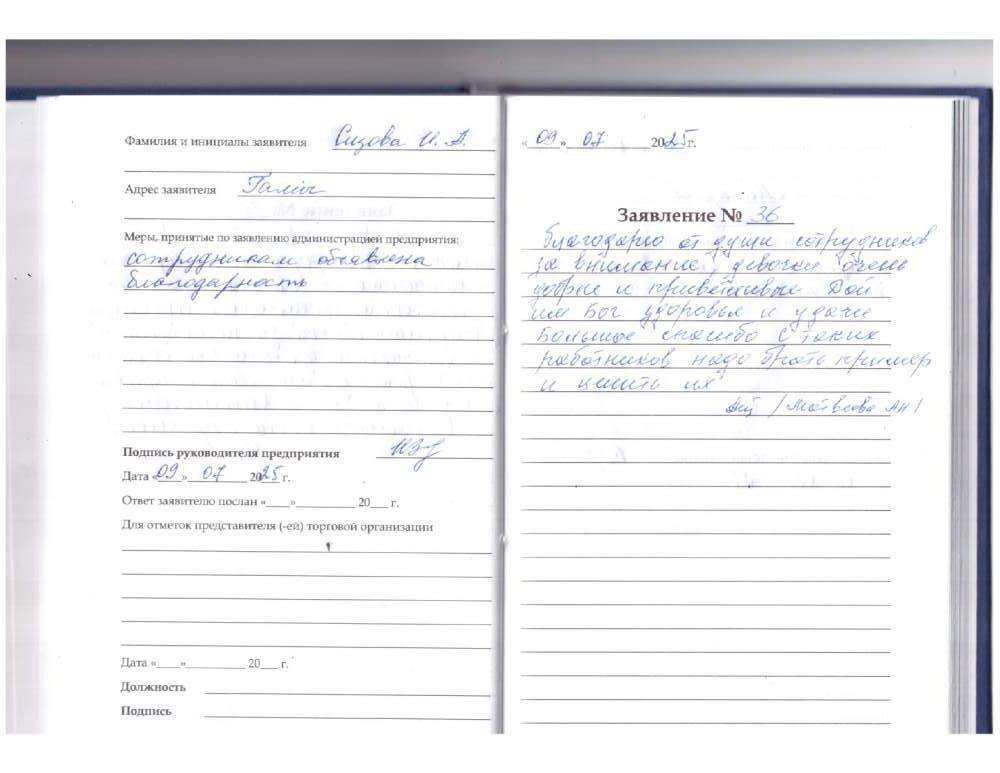 Фамилия и инициалы заявителя Сизова И. А.
Адрес заявителя Галич
Меры, принятые по заявлению администрацией предприятия:
сотрудникам объявлена
благодарность
Подпись руководителя предприятия
Дата «09» 07 2025 г.
Ответ заявителю послан «___»__________ 20___ г.
Для отметок представителя (-ей) торговой организации
Дата «____»__________ 20___ г.
Должность
Подпись
«09» 07 2025г.
Заявление № 36
Благодарю от души сотрудников
за внимание, девочки очень
добрые и приветливые Дай
им Бог здоровья и удачи
Большое спасибо с таких
работников надо брать пример
и ценить их
/ Матвеева АН /